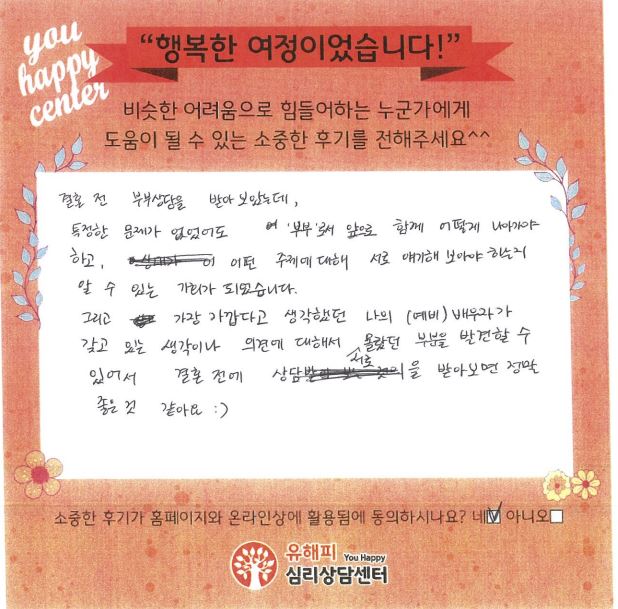 you
happy
center
“행복한 여정이었습니다!”
비슷한 어려움으로 힘들어하는 누군가에게
도움이 될 수 있는 소중한 후기를 전해주세요^^
결혼 전 부부상담을 받아 보았는데,
특정한 문제가 없었어도 '부부'로서 앞으로 함께 어떻게 나아가야
하고, 이 어떤 주제에 대해 서로 얘기해 보아야 하는지
알 수 있는 자리가 되었습니다.
그리고 가장 가깝다고 생각했던 나의 (예비) 배우자가
갖고 있는 생각이나 의견에 대해서 서로 몰랐던 부분을 발견할 수
있어서 결혼 전에 상담을 받아보면 정말
좋은 것 같아요 :)
소중한 후기가 홈페이지와 온라인상에 활용됨에 동의하시나요? 네 아니오
유해피 You Happy
심리상담센터